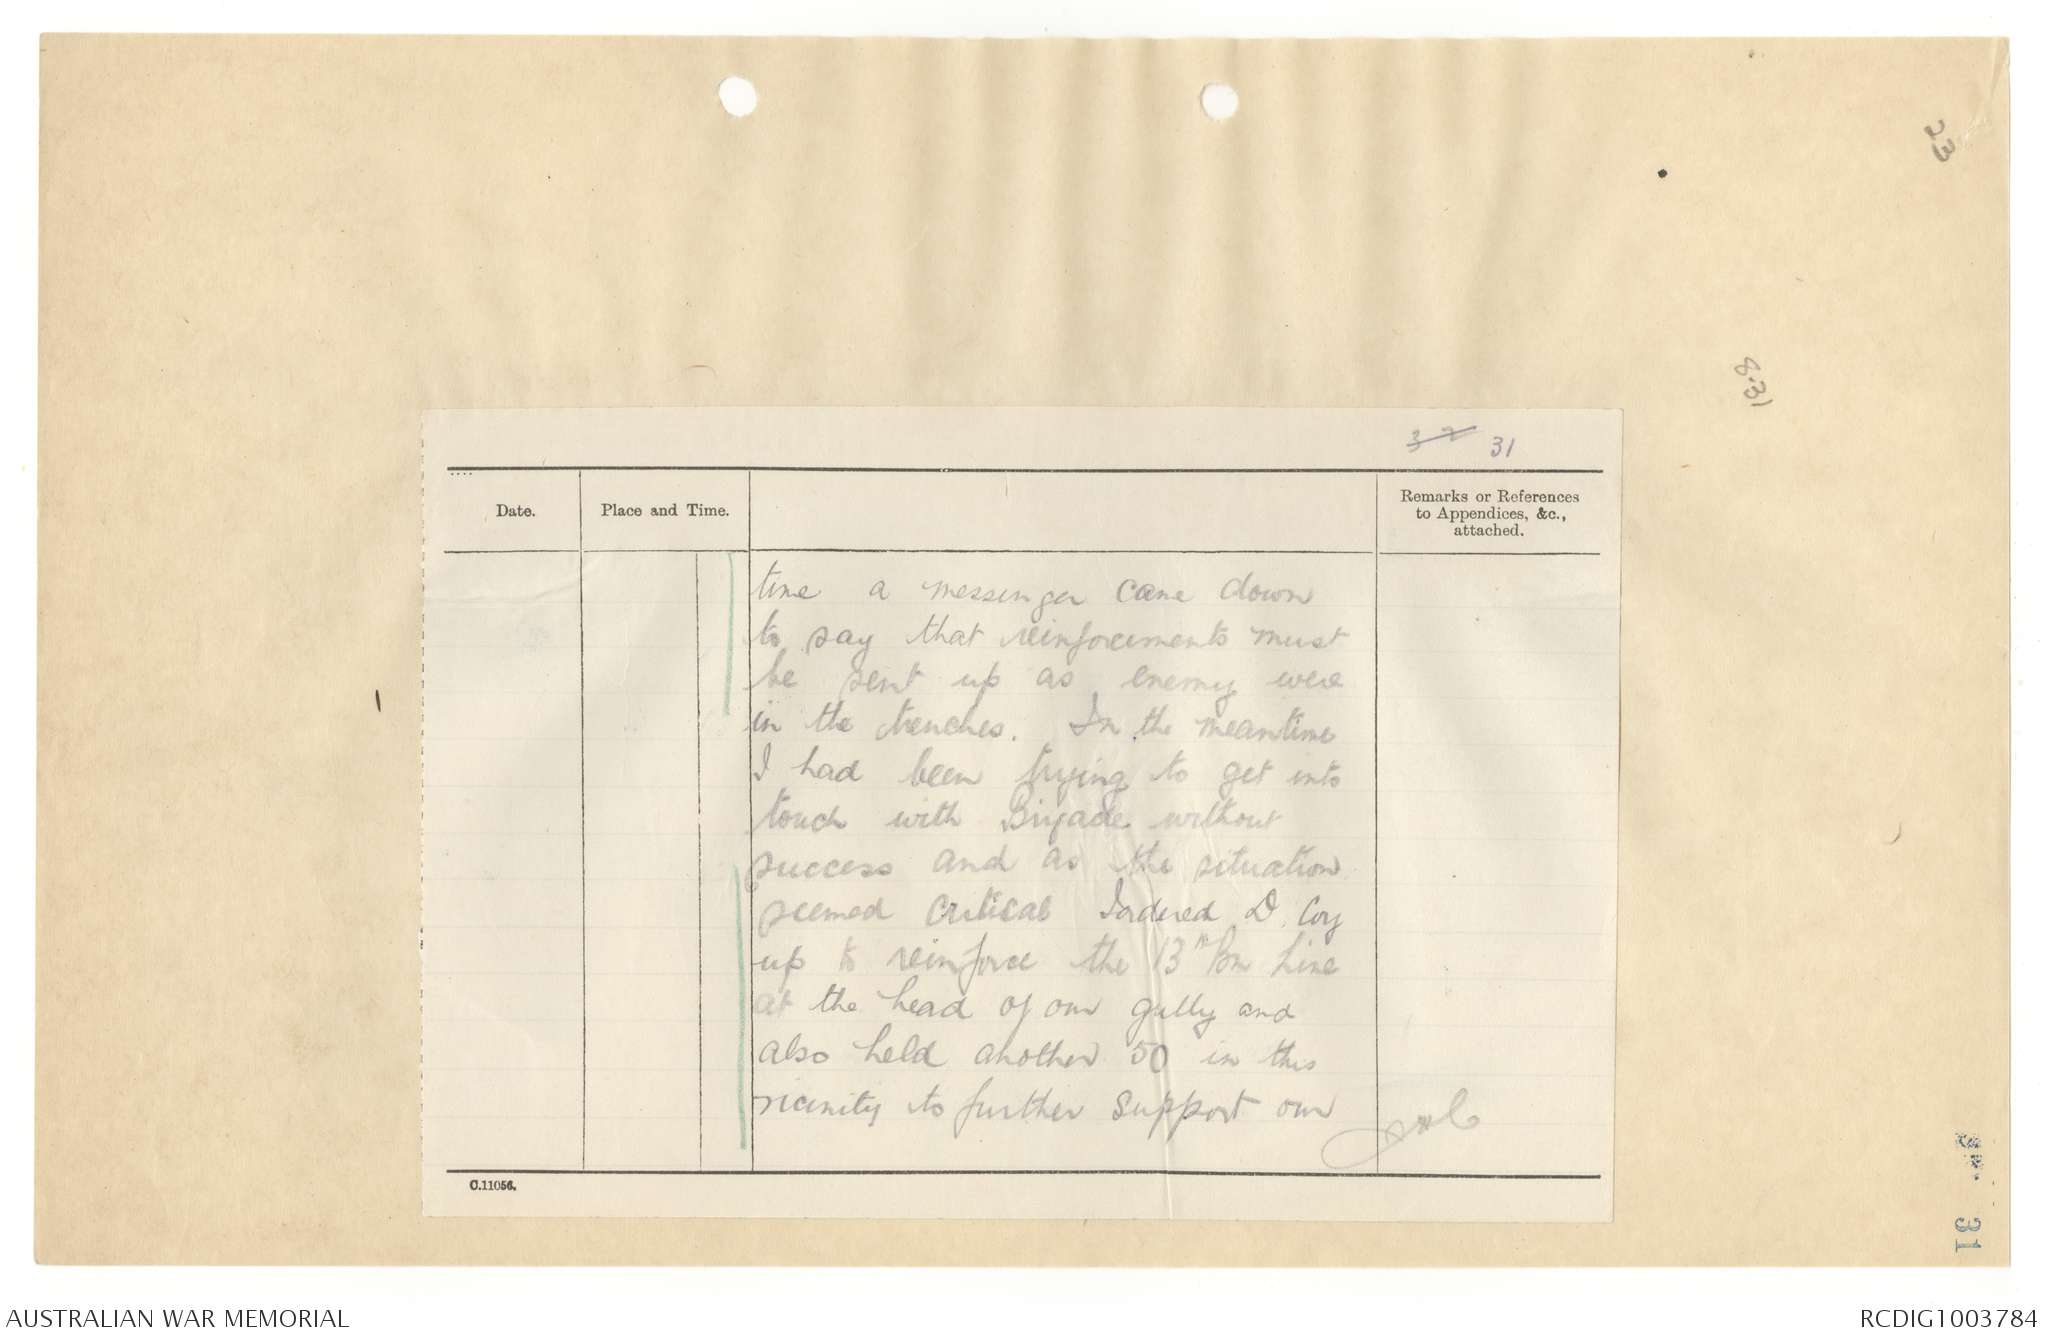 23
8.31
32 31
Date.
Place and Time.
Remarks or References
to Appendices, &c.,
attached.
time a messenger came down
to say that reinforcements must
be sent up as enemy were
in the trenches. In the meantime
I had been trying to get into
touch with Brigade without
success and as the situation
seemed critical I ordered D Coy
up to reinforce the 13th Bn line
at the head of our gully and
also held another 50 in this
vicinity to further support our
C.11056.
31
AUSTRALIAN WAR MEMORIAL
RCDIG1003784